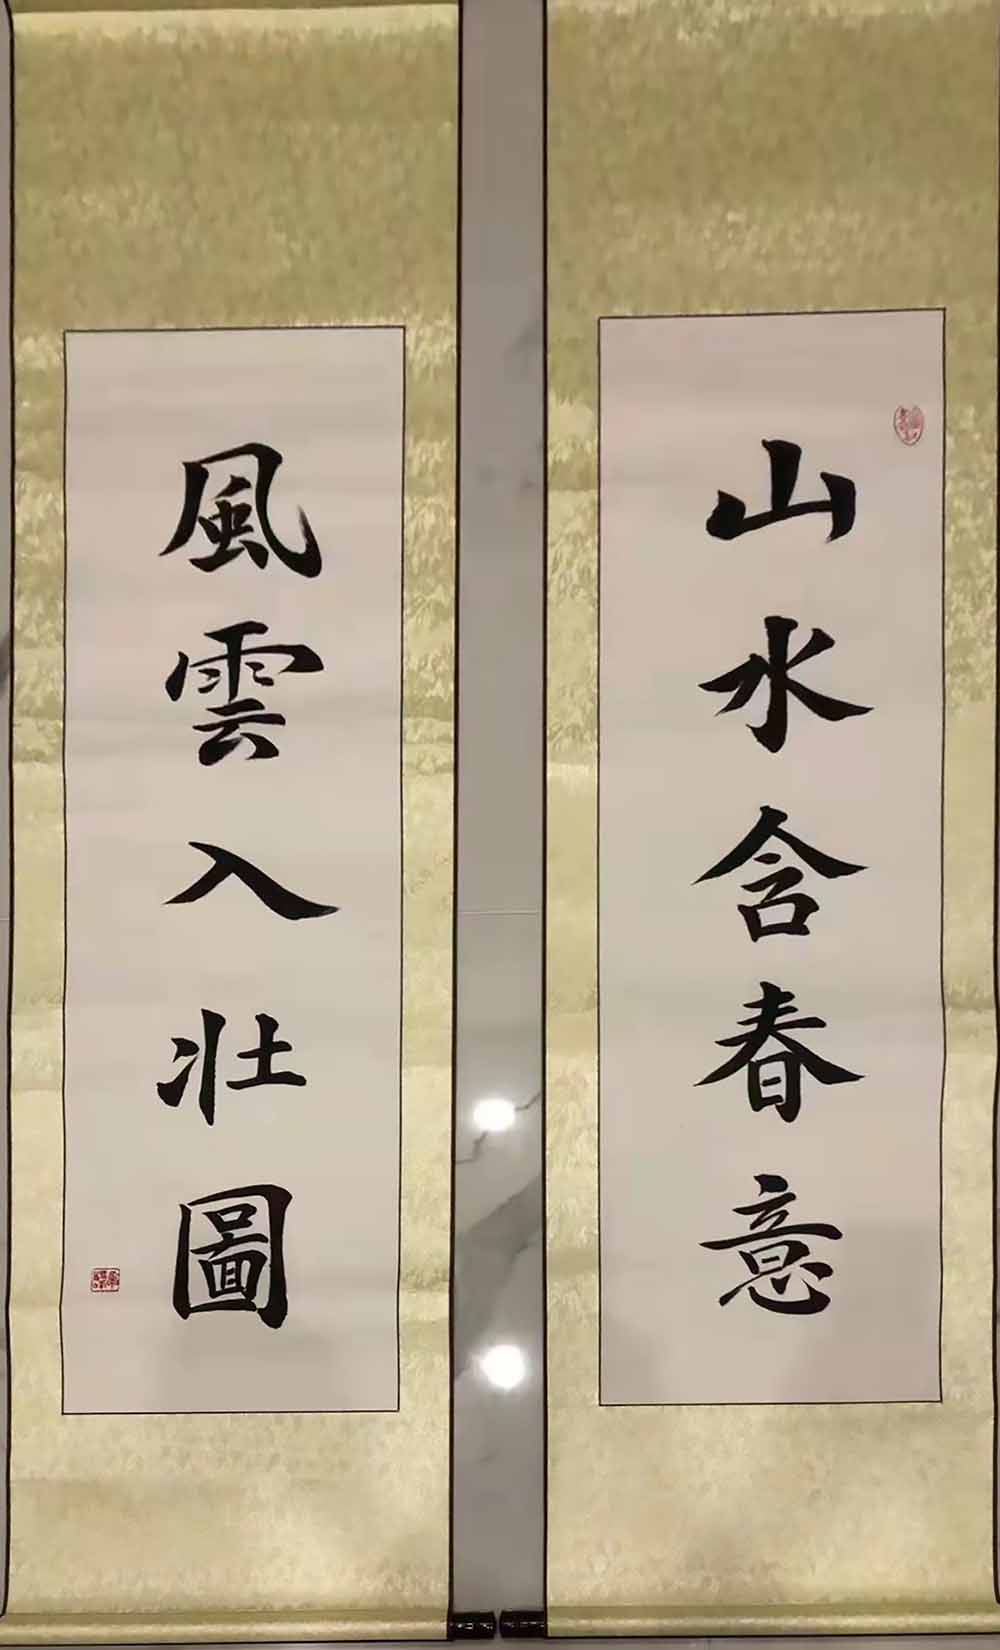 山水含春意
風雲入壯圖